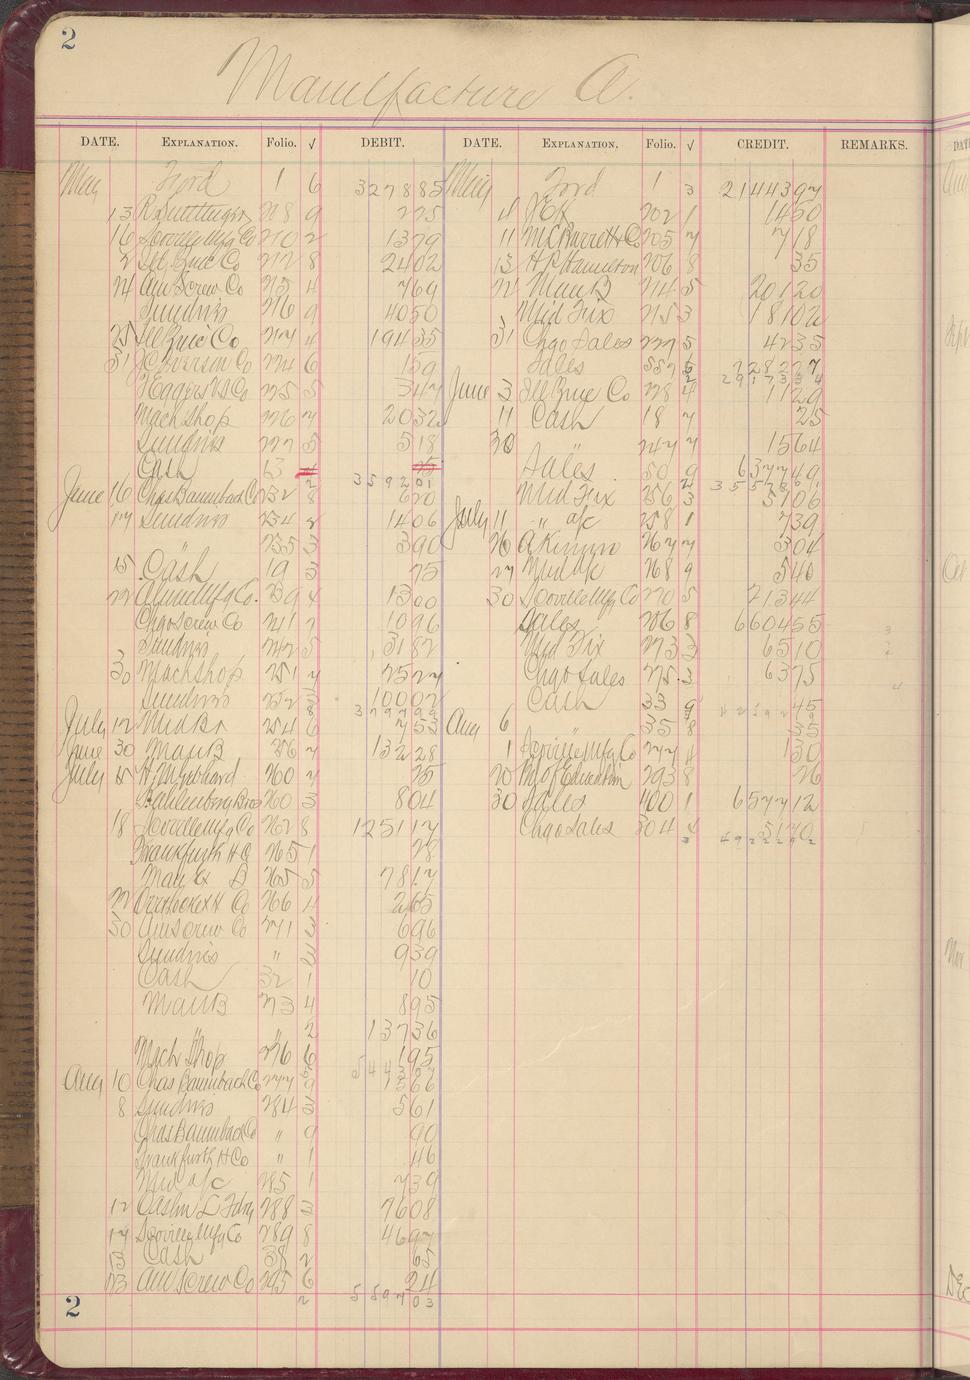 2
Manufacture A.
DATE. EXPLANATION. Folio. √ DEBIT. DATE. EXPLANATION. Folio. √ CREDIT. REMARKS.
May Ford 1 6 327885 May Ford 1 3 2144397
13 218 9 225 4 202 1 1450
16 Scoville Mfg Co 210 2 1379 11 McBarrett & Co 205 7 718
2 Ill. Zinc Co 212 8 2402 13 H. P. Hamilton 206 8 35
24 Am Screw Co 213 4 769 24 Man B 214 5 20120
Sundries 216 9 4050 Mid Fix 215 3 18102
25 Ill Zinc Co 217 4 19435 31 Chgo Sales 227 5 4235
31 J C Iverson Co 224 6 159 Sales 557 6 728277
2 2917334
Co 225 5 347 June 3 Ill Zinc Co 228 4 1129
Mach Shop 226 7 2032 11 Cash 18 7 25
Sundries 227 5 518 30 247 7 1564
Cash 13 4 75 Sales 50 9 637749
2 359201 2 3557861
June 16 Chas Baumbach Co 232 8 620 Mid Fix 256 3 5106
17 Sundries 234 2 1406 July 11 " a/c 258 1 739
" 235 3 390 26 A Kimm 267 7 304
15 Cash 19 3 75 27 Mid a/c 268 9 540
22 Mfg Co. 239 4 1300 30 Scoville Mfg Co 270 5 21344
Chgo Screw Co 241 2 1096 Sales 286 8 660455
Sundries 242 5 3182 Mid Fix 273 3 6510
30 Mach Shop 251 4 2527 Chgo Sales 275 3 6375
Sundries 252 3 10002 Cash 33 9 45
8 379799
July 12 Mid Br 254 6 753 Aug 6 35 8 35
June 30 Man B 256 7 13228 1 Scoville Mfg Co 277 4 130
July 5 260 2 25 20 Bd of Education 293 8 26
Bros 260 3 804 30 Sales 400 1 657712
18 Scoville Mfg Co 262 8 125117 Chgo Sales 304 4 5170
3 4922292
Frankfurth H Co 265 1 28
Man Ex B 265 5 7817
22 Co 266 4 265
30 Am Screw Co 271 3 696
Sundries " 3 939
Cash 32 1 10
Man B 273 4 895
" " 2 13736
Mach Shop 276 6 195
Aug 10 Chas Baumbach Co 277 9 1366
8 Sundries 284 3 561
Chas Baumbach Co " 9 90
Frankfurth H Co " 1 46
Mid a/c 285 1 739
12 288 3 7608
17 Scoville Mfg Co 289 8 4697
13 Cash 38 2 65
23 Am Screw Co 295 6 24
2 559703
2